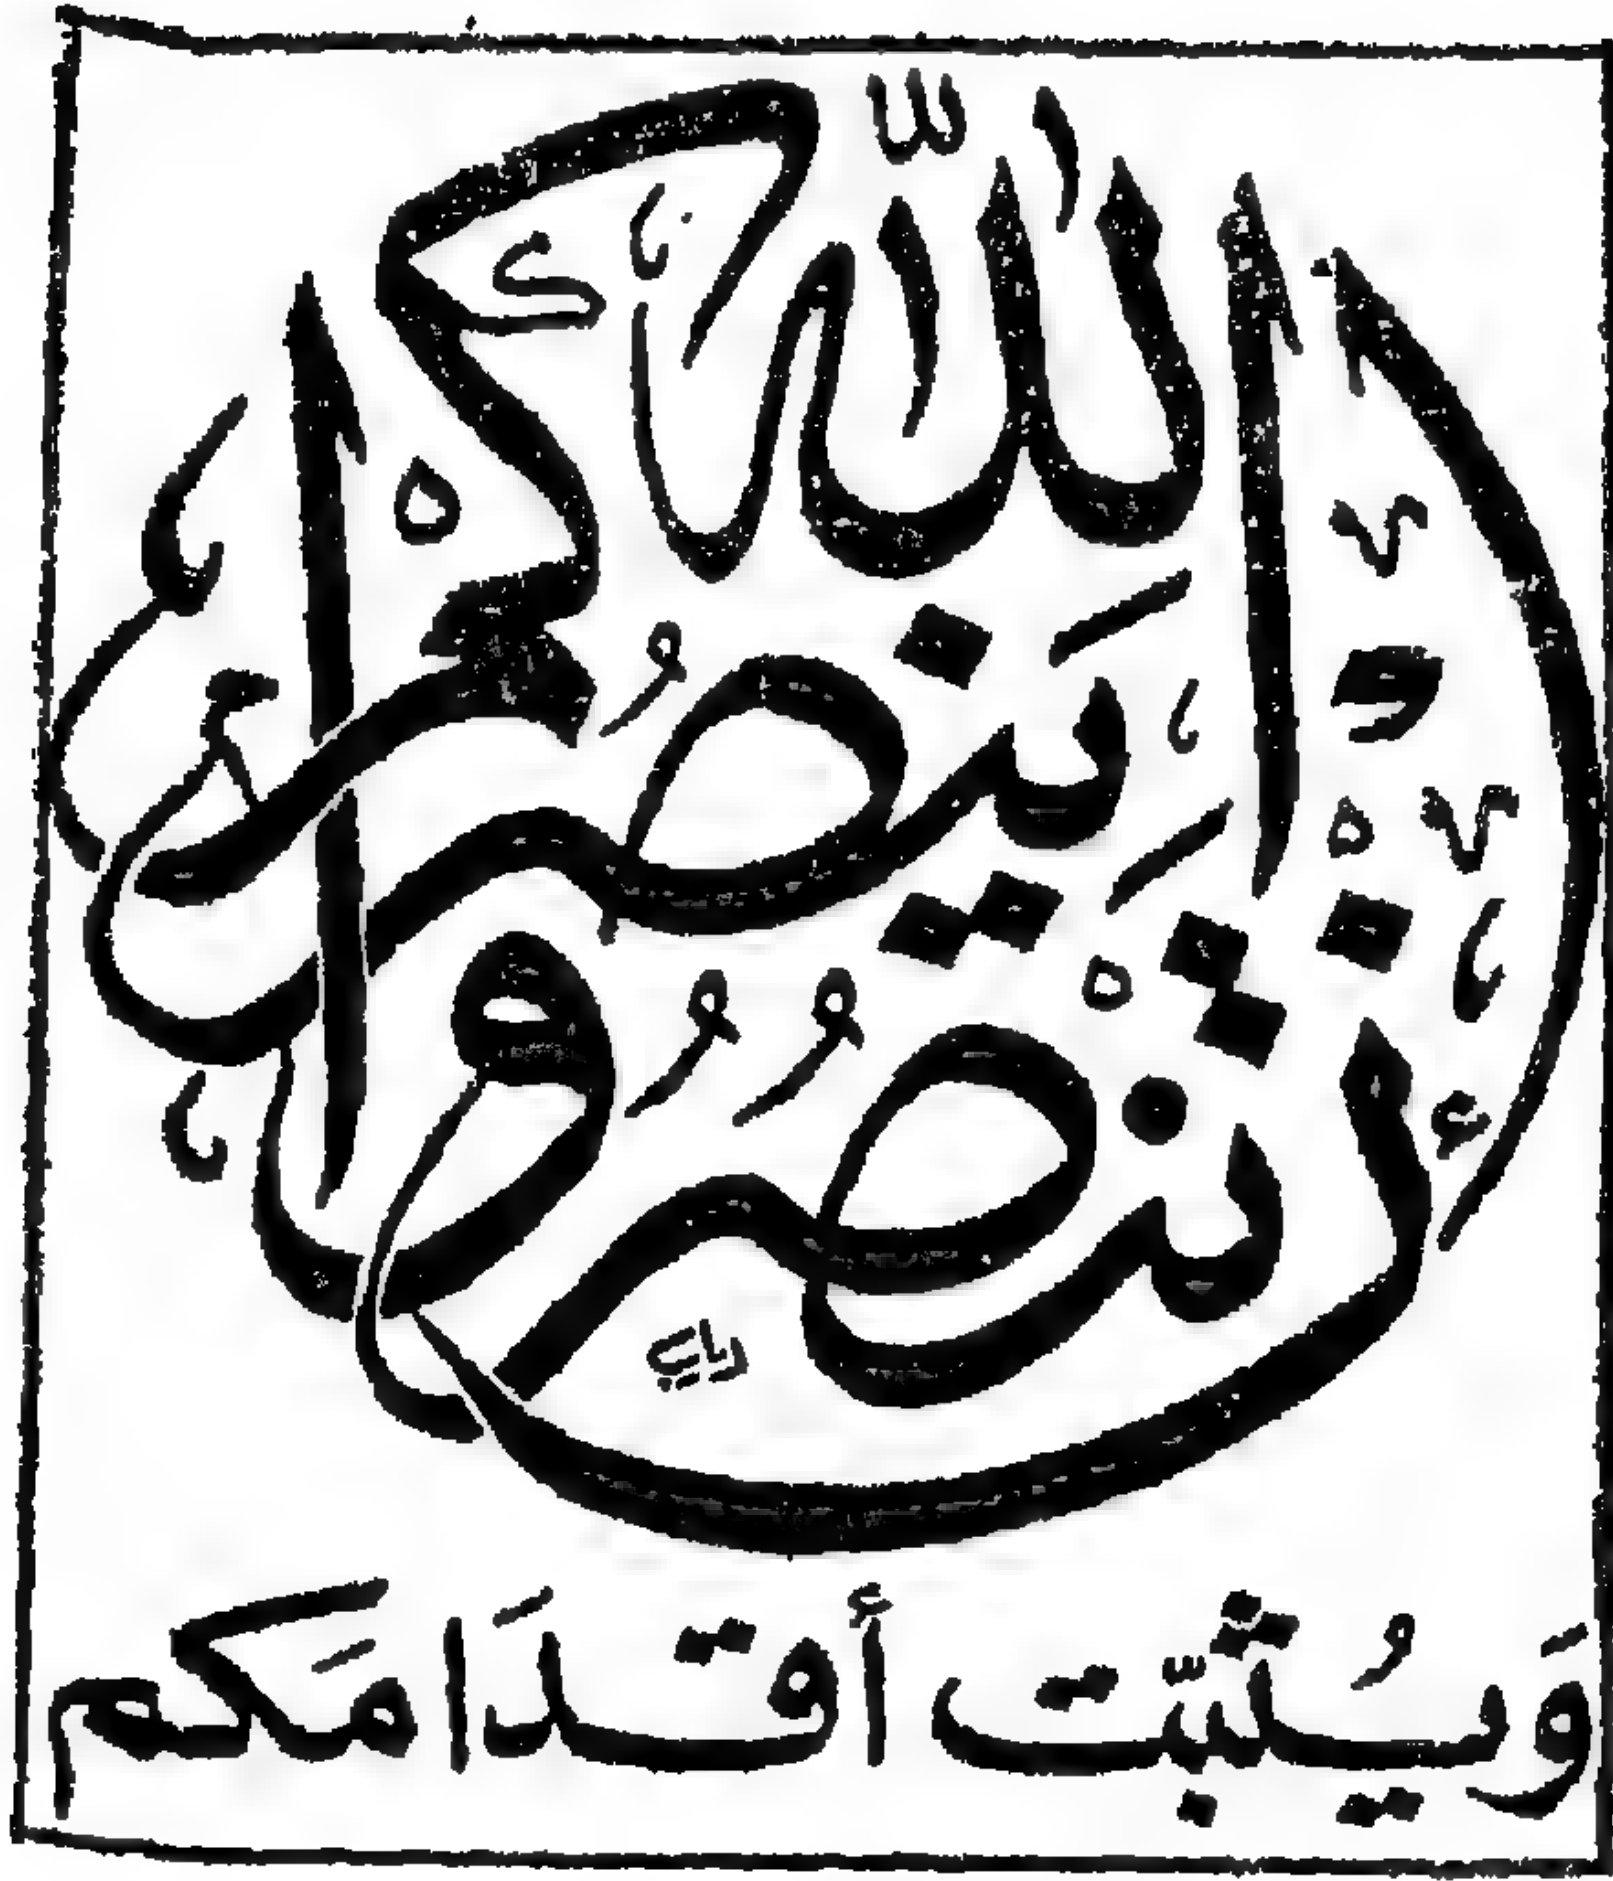 إن تنصروا الله ينصركم
وَيُثبّت أقدَامَكم